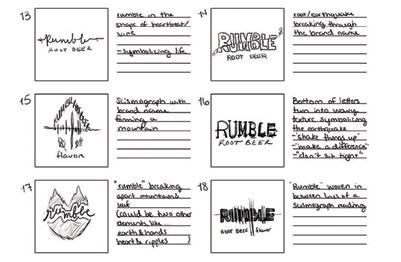 13
Rumble
ROOT BEER
rumble in the
shape of heartbeat/
vine
-symbolizing life
14
RUMBLE
ROOT BEER
root/earthquake
breaking through
the brand name
15
flavor
Seismograph with
brand name
forming a
mountain
16
RUMBLE
ROOT BEER
Bottom of letters
turn into wavy
texture symbolizing
the earthquake
-"shake things up"
-"make a difference"
-"don't sit tight"
17
rumble
"rumble" breaking
apart mountains
leaf
(could be two other
elements like...
earth & hands
heart & ripples )
18
RUMBLE
ROOT BEER flavor
"Rumble" woven in
between lines of a
seismograph reading